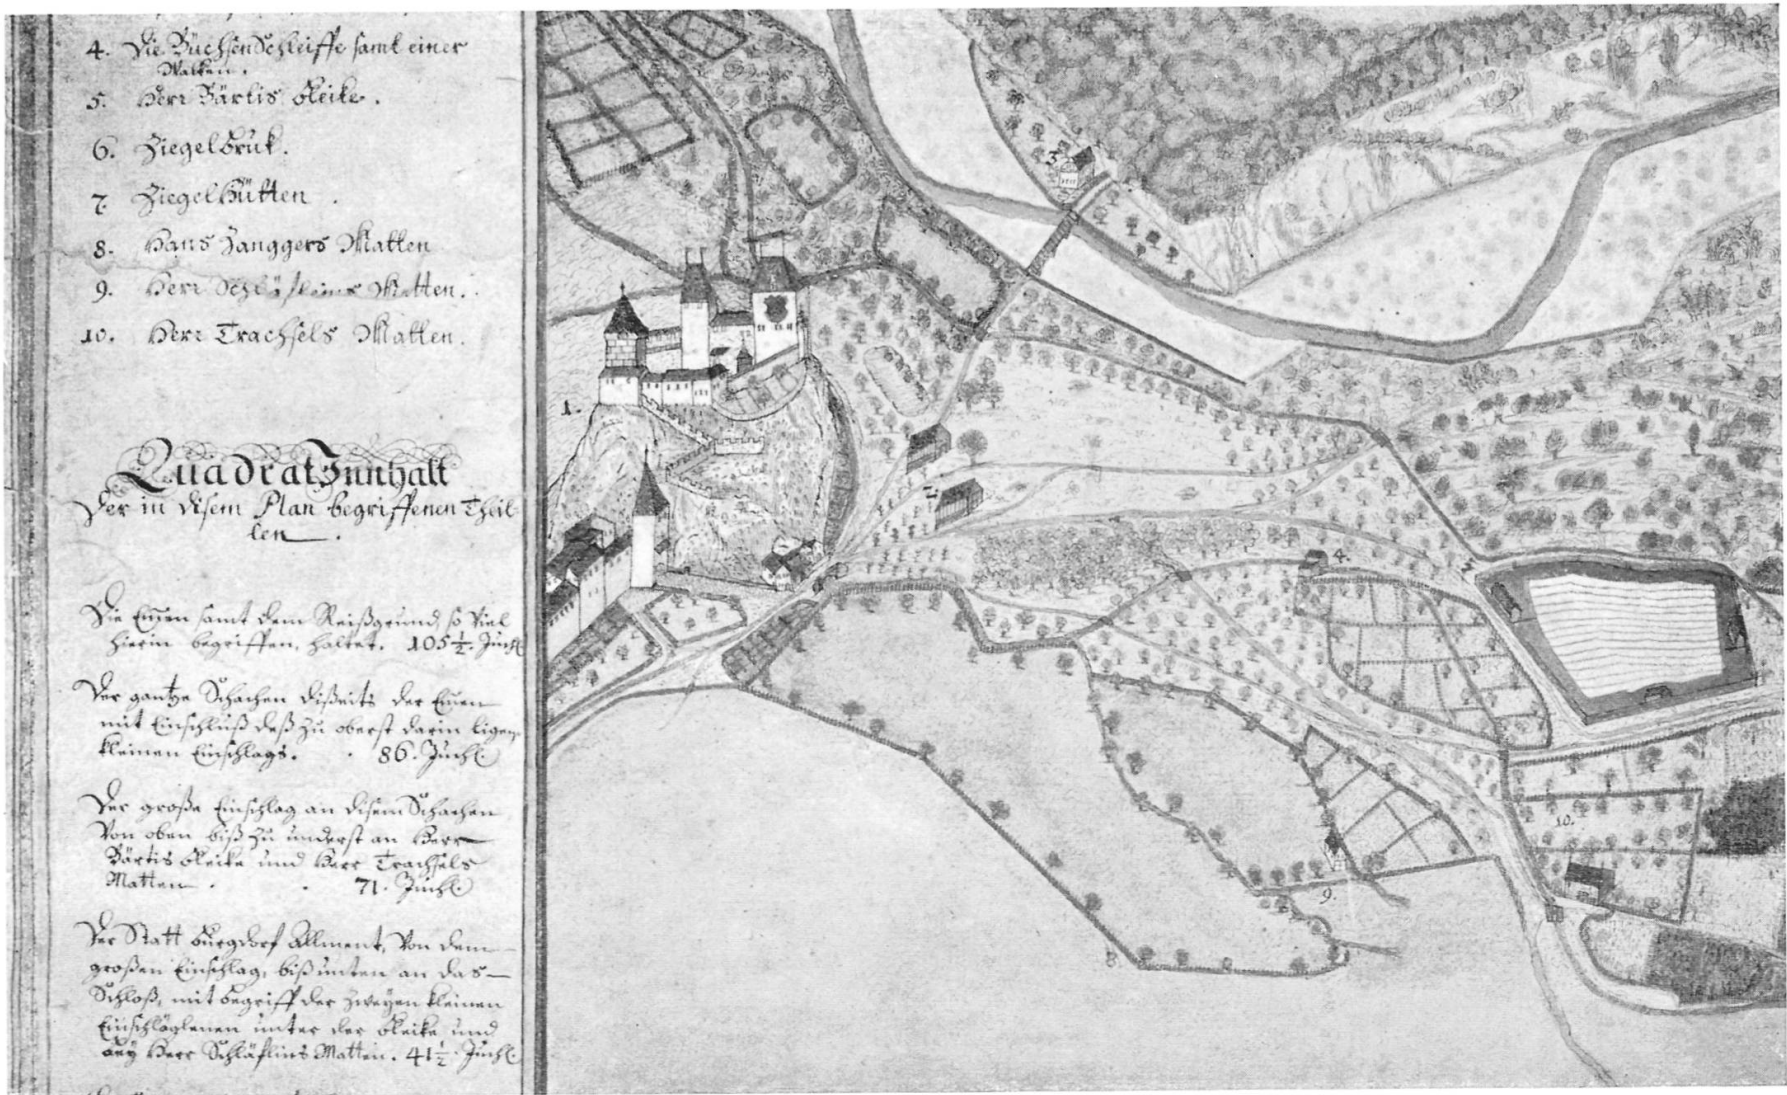 4. Die Büchsen Schleiffe samt einer
Walken.
5. Herr Bärtis Bleike.
6. Ziegelbruk.
7. Ziegel Hütten.
8. Hans Zanggers Matten
9. Herr Schläflins Matten.
10. Herr Trachsels Matten.
Quadrat Innhalt
Der in disem Plan begriffenen Theil
len.
Die Emen samt dem Reißgrund, so viel
hierin begriffen, haltet. 105½. Juch
Der gantze Schachen dißeits der Emen
mit Einschluß deß zu oberst darin ligen
kleinen Einschlags. 86. Juch.
Der große Einschlag an disem Schachen
Von oben biß zu underst an Herr
Bärtis Bleike und Herr Trachsels
Matten. 71. Juch.
Der Statt Burgdorf Allment, Von dem
großen Einschlag, biß unten an das
Schloß, mit begriff der zweyen kleinen
Einschläglenen unter der Bleike und
bey Herr Schläflins Matten. 41½. Juch.
1.
2.
3.
4.
8.
9.
10.